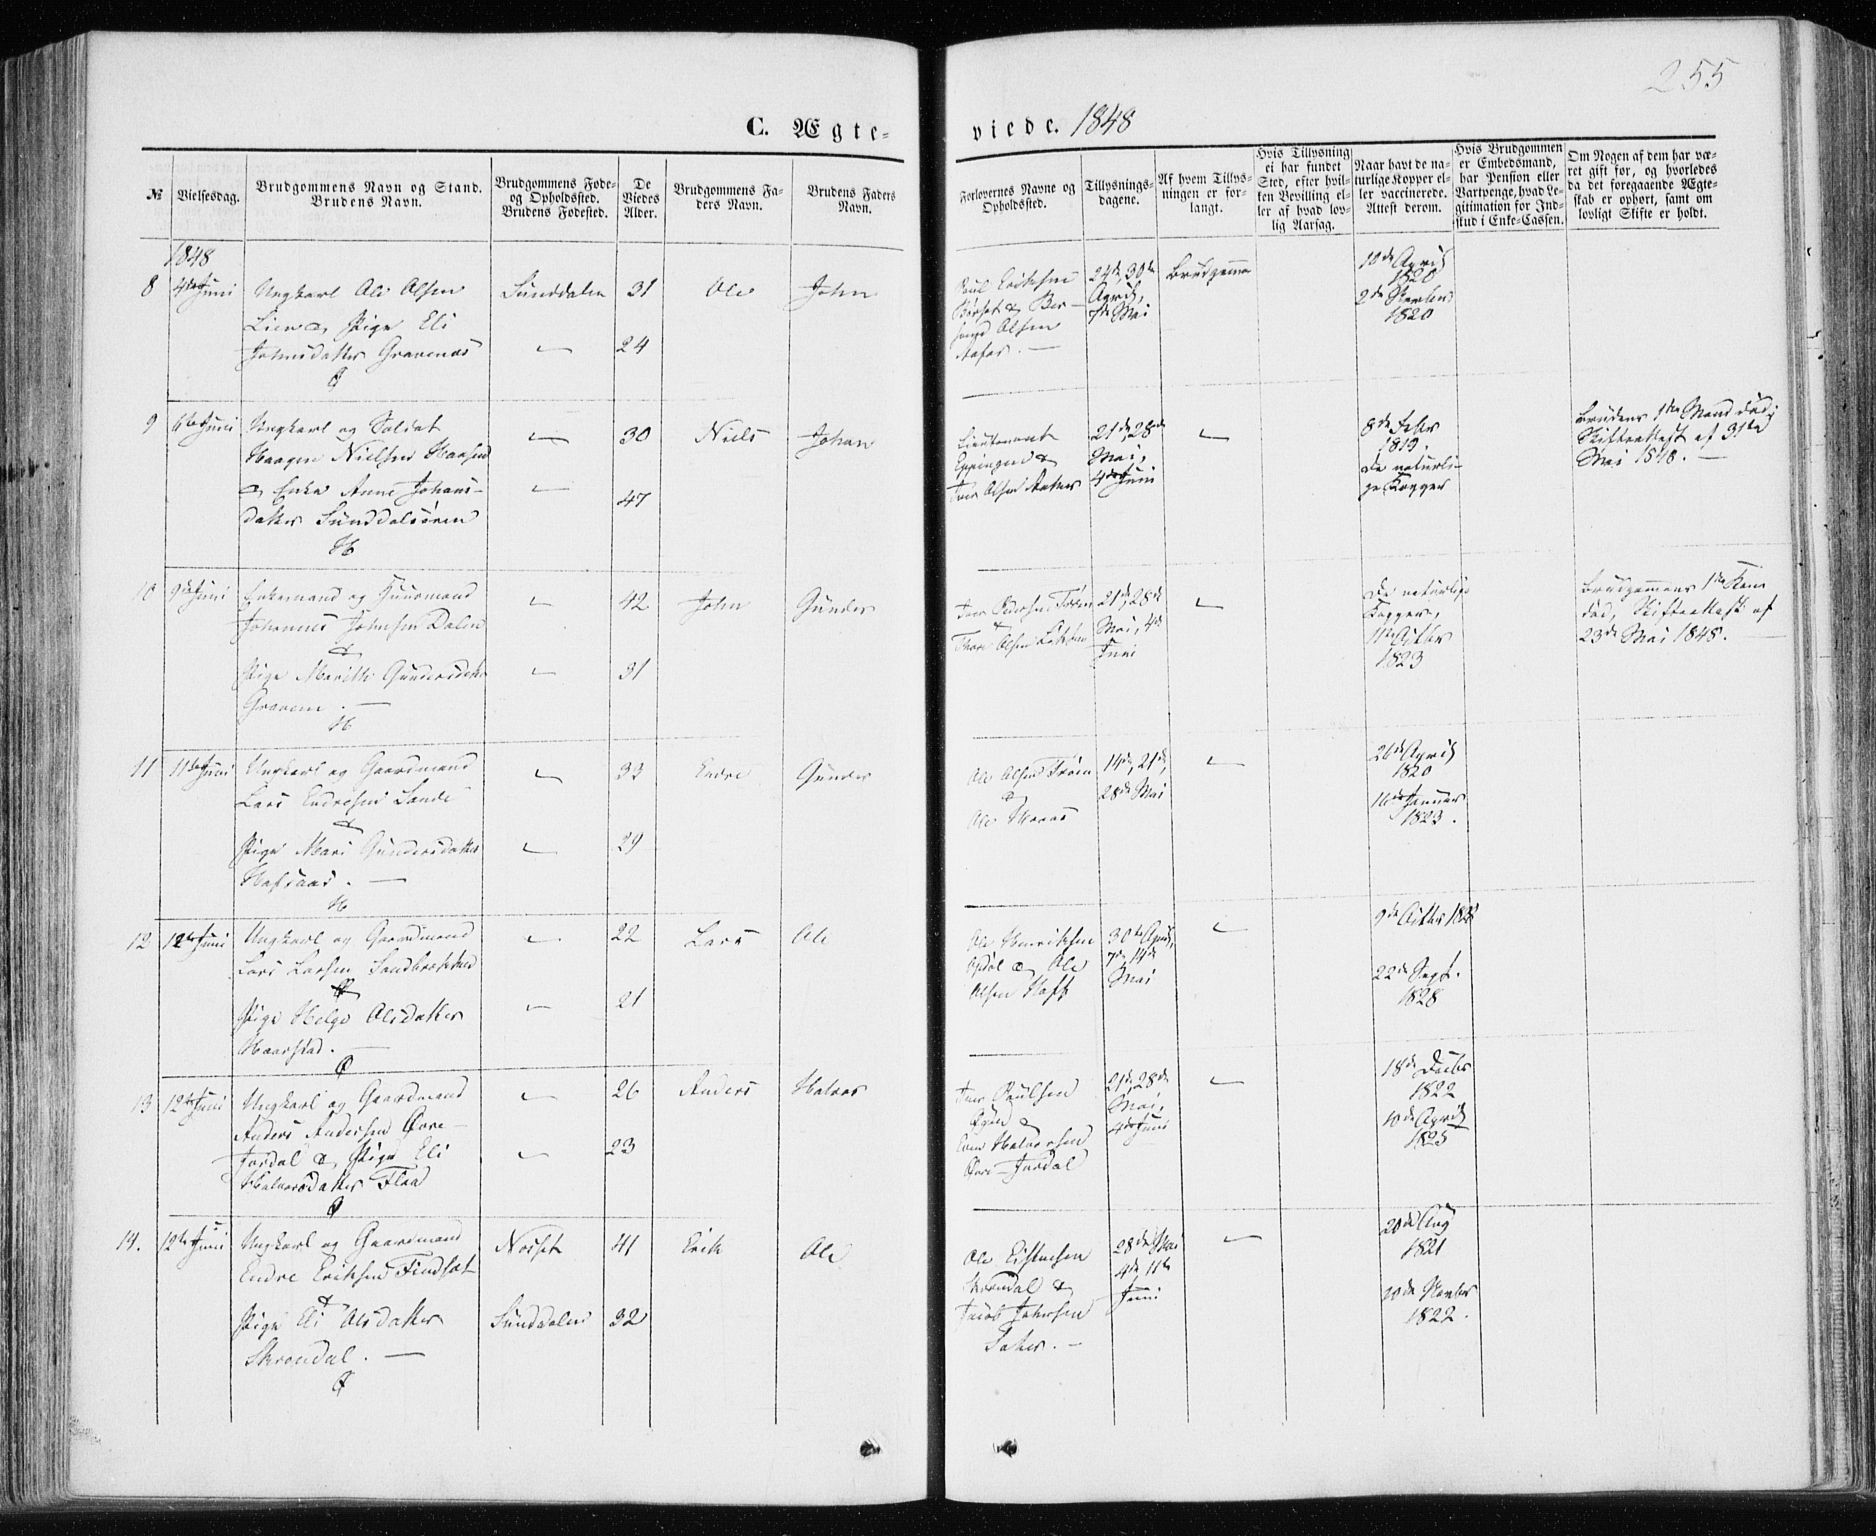 255
C. Ægte-
viede. 1848
№
Vielsesdag.
Brudgommens Navn og Stand.
Brudens Navn.
Brudgommens Føde-
og Opholdssted.
Brudens Fødested.
De
Viedes
Alder.
Brudgommens Fa-
ders Navn.
Brudens Faders
Navn.
Forlovernes Navne og
Opholdssted.
Tillysnings-
dagene.
Af hvem Tillys-
ningen er for-
langt.
Hvis Tillysning
ei har fundet
Sted, efter hvil-
ken Bevilling el-
ler af hvad lov-
lig Aarsag.
Naar havt de na-
turlige Kopper el-
ler vaccinerede.
Attest derom.
Hvis Brudgommen
er Embedsmand,
har Pension eller
Vartpenge, hvad Le-
gitimation for Ind-
skud i Enke-Cassen.
Om Nogen af dem har væ-
ret gift før, og hvorledes
da det foregaaende Ægte-
skab er ophørt, samt om
lovligt Skifte er holdt.
1848
8 4de Juni
Ungkarl Ole Olsen
Lien & Pige Eli
Johnsdatter Gravenæs
Sunddalen
31
24
Ole
John
24de, 30te
April,
7de Mai
Brudgommen
10de April
1820
1820
9 6te Juni
Ungkarl og Soldat
Haagen Nielsen
& Enke Anne Johans-
datter Sunddalsøren
30
47
Niels
Johan
Lieutenant
21de, 28de
Mai,
4de Juni
8de Febr
1819.
De naturli-
ge Kopper
Brudens 1ste Mand død,
Skifteattest af 31te
Mai 1848.
10 9de Juni
Enkemand og Huusmand
Johannes Johnsen Dalen
&
Pige Marith Gundersdatter
Gravem.
42
31
John
Gunder
21de, 28de
Mai, 4de
Juni
De naturlige
Kopper,
11te Octbr
1823
Brudgommens 1ste Kone
død, Skifteattest af
23de Mai 1848.
11 11te Juni
Ungkarl og Gaardmand
Lars Endresen Sande
&
Pige Mari Gundersdatter
33
29
Endre
Gunder
Ole Olsen
&
Ole
14de, 21de,
28de Mai
26de April
1820
16de Januar
1823.
12 12te Juni
Ungkarl og Gaardmand
Lars Larsen
&
Pige Helge Olsdatter
Haarstad.
22
21
Lars
Ole
Ole Henriksen
& Ole
Olsen
30te April,
7de, 14de
Mai
9de Octbr 1828
22de Sept.
1828
13 12te Juni
Ungkarl og Gaardmand
Anders Andersen Øvre-
Jordal & Pige Eli
Halvorsdatter Flaa
26
23
Anders
Halvor
Iver Paulsen
&
Halvorsen
Øvre-Jordal
21de, 28de
Mai,
4de Juni
18de Decbr
1822
10de April
1825
14. 12te Juni
Ungkarl og Gaardmand
Endre Eriksen Findsæt
&
Pige Eli Olsdatter
Skrondal.
Nesset
Sunddalen
41
32
Erik
Ole
Ole
Skrondal &
Jacob Johnsen
28de Mai
4de, 11te
Juni
20de Aug
1821
1822.